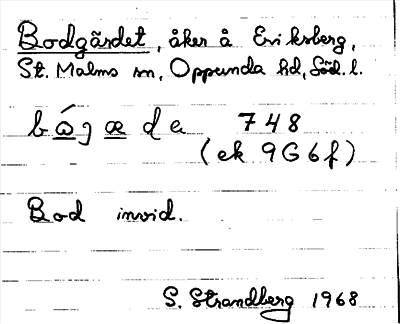 Bodgärdet, åker å Eriksberg,
St. Malms sn, Oppunda hd, Söd. l.
bώjæde 748
(ek 9G6f)
Bod invid.
S. Strandberg 1968